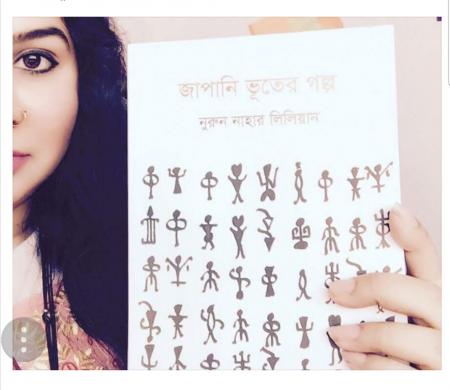 জাপানি ভূতের গল্প
নুরুন নাহার লিলিয়ান